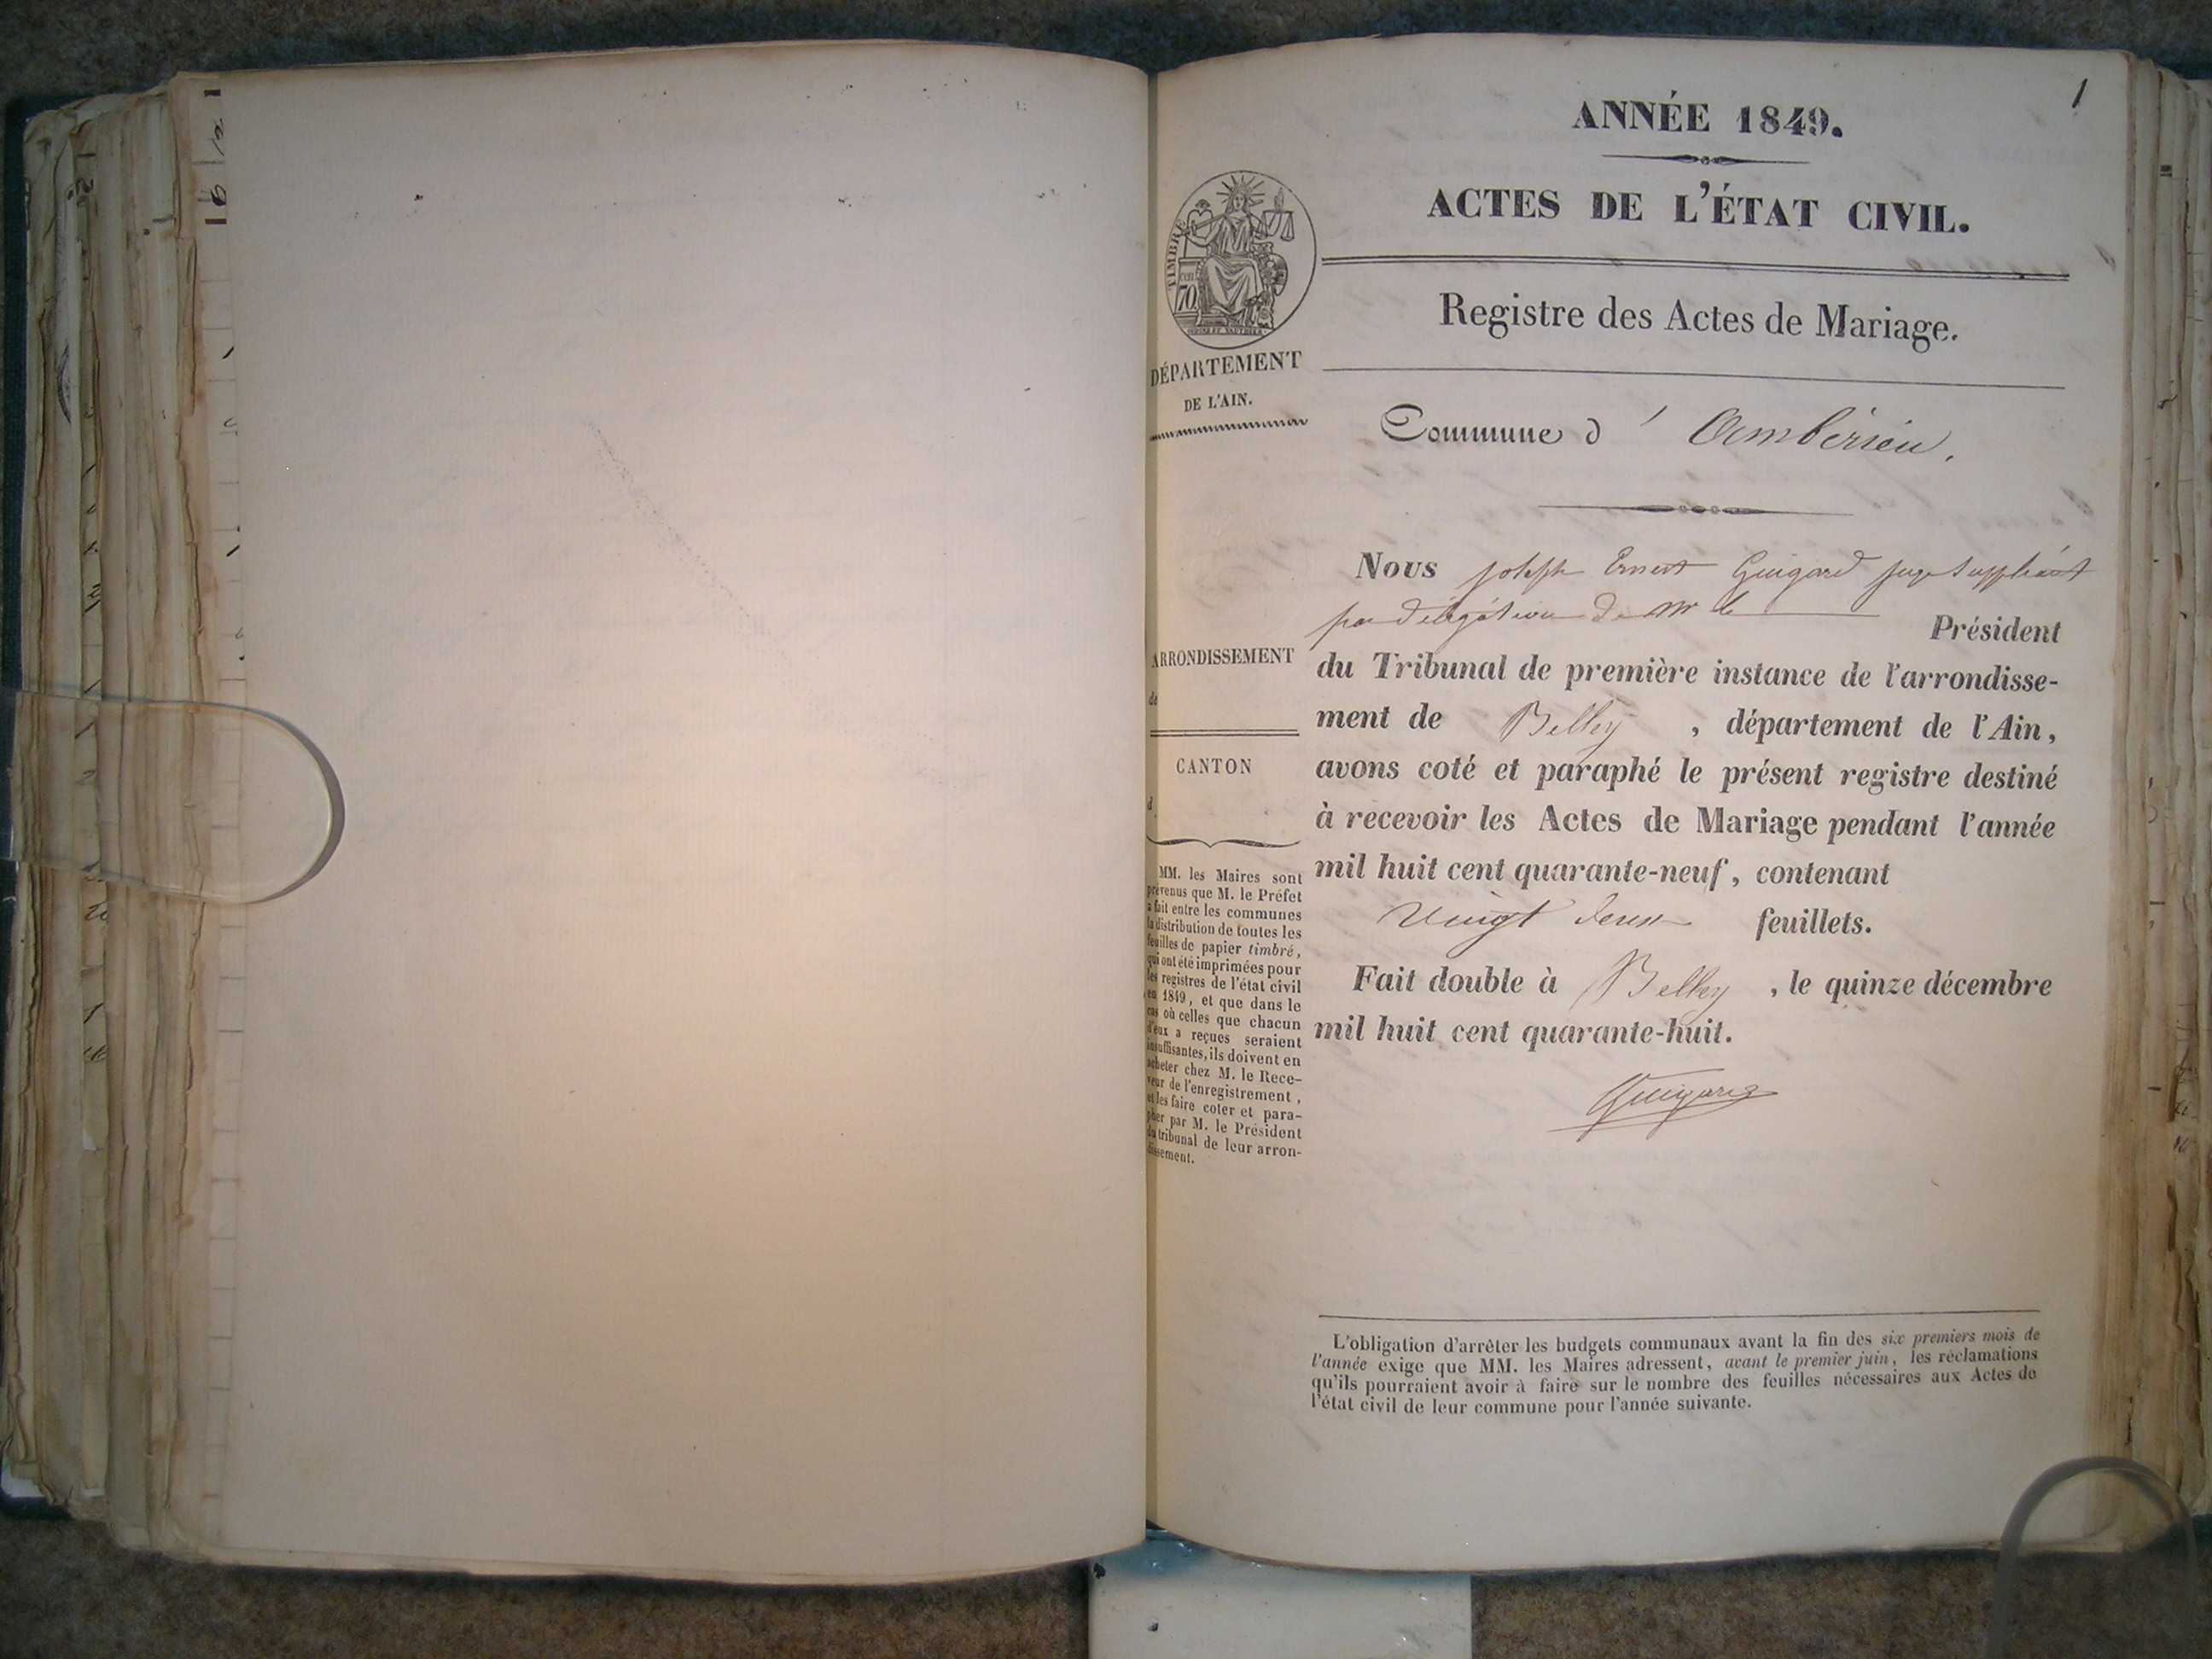 1
ANNÉE 1849.
ACTES DE L'ÉTAT CIVIL.
Registre des Actes de Mariage.
TIMBRE
70
DÉPARTEMENT
DE L'AIN.
Commune d' Ambérieu.
Nous Joseph Ernest Guigard juge suppléant
par délégation de Mr le Président
du Tribunal de première instance de l'arrondisse-
ment de Belley, département de l'Ain,
avons coté et paraphé le présent registre destiné
à recevoir les Actes de Mariage pendant l'année
mil huit cent quarante-neuf, contenant
vingt deux feuillets.
Fait double à Belley, le quinze décembre
mil huit cent quarante-huit.
Guigard
ARRONDISSEMENT
de
CANTON
d
MM. les Maires sont
prévenus que M. le Préfet
a fait entre les communes
la distribution de toutes les
feuilles de papier timbré,
qui ont été imprimées pour
les registres de l'état civil
en 1849, et que dans le
cas où celles que chacun
d'eux a reçues seraient
insuffisantes, ils doivent en
acheter chez M. le Rece-
veur de l'enregistrement,
et les faire coter et para-
pher par M. le Président
du tribunal de leur arron-
dissement.
L'obligation d'arrêter les budgets communaux avant la fin des six premiers mois de
l'année exige que MM. les Maires adressent, avant le premier juin, les réclamations
qu'ils pourraient avoir à faire sur le nombre des feuilles nécessaires aux Actes de
l'état civil de leur commune pour l'année suivante.